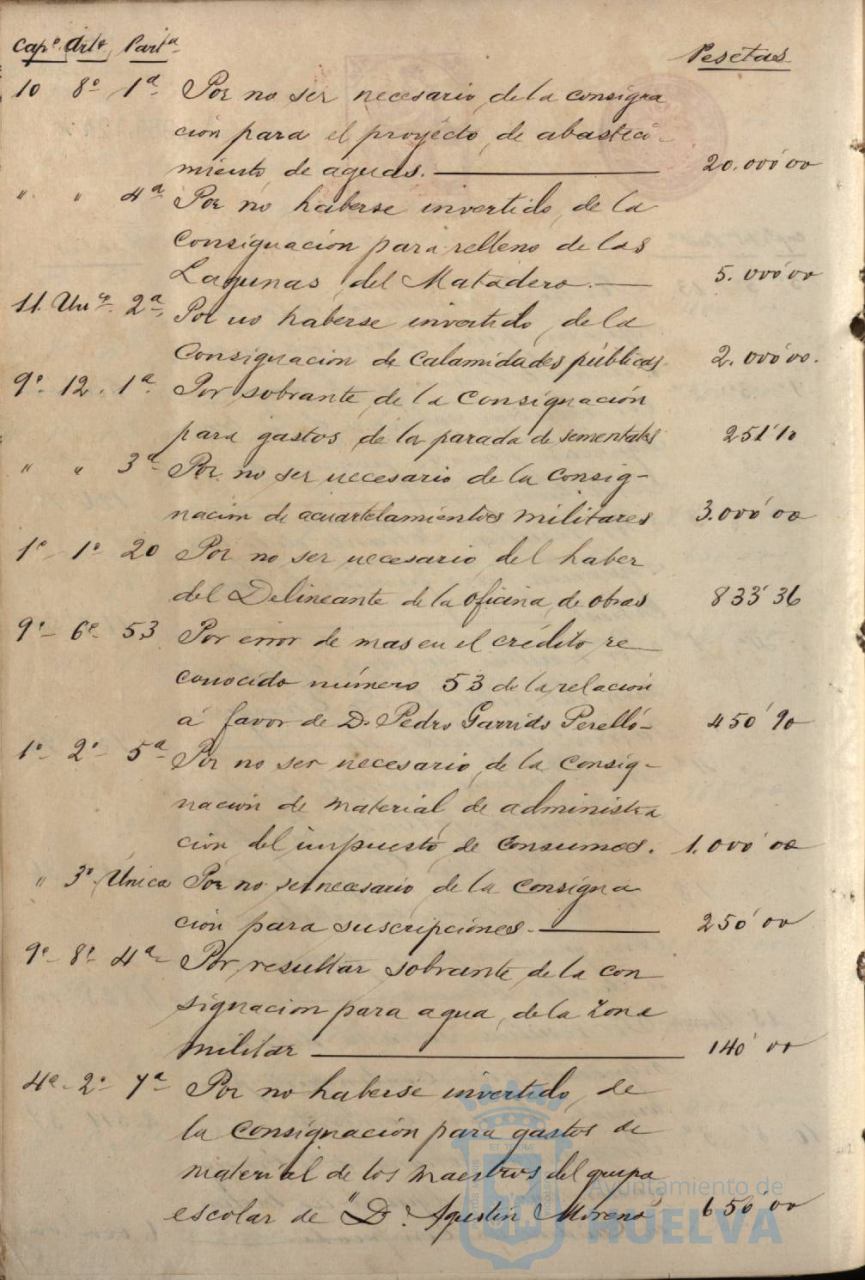 Capº Artº Partª Pesetas
10 8º 1ª Por no ser necesario, de la consigna
ción para el proyecto, de abasteci-
miento de aguas. 20.000'00
" " 4ª Por no haberse invertido, de la
Consignación para relleno de las
Lagunas del Matadero. 5.000'00
11. Unº 2ª Por no haberse invertido, de la
Consignación de Calamidades públicas 2.000'00.
9º 12. 1ª Por sobrante, de la Consignación
para gastos de la parada de sementales 251'10
" " 3ª Por no ser necesario de la consig-
nación de acuartelamientos militares 3.000'00
1º 1º 20 Por no ser necesario, del haber
del Delineante de la oficina, de obras 833'36
9º 6º 53 Por error de mas en el crédito, re
conocido número 53 de la relación
á favor de D. Pedro Garrido Perelló- 450'90
1º 2º 5ª Por no ser necesario, de la Consig-
nación de material de administra
ción del impuesto de Consumos. 1.000'00
" 3º Única Por no ser necesario de la consigna
ción para suscripciones. 250'00
9º 8º 4ª Por resultar sobrante, de la con
signación para agua, de la zona
militar 140'00
4º 2º 7ª Por no haberse invertido, de
la Consignación para gastos de
material de los maestros del grupo
escolar de "D. Agustín Moreno 650'00
Ayuntamiento de
HUELVA